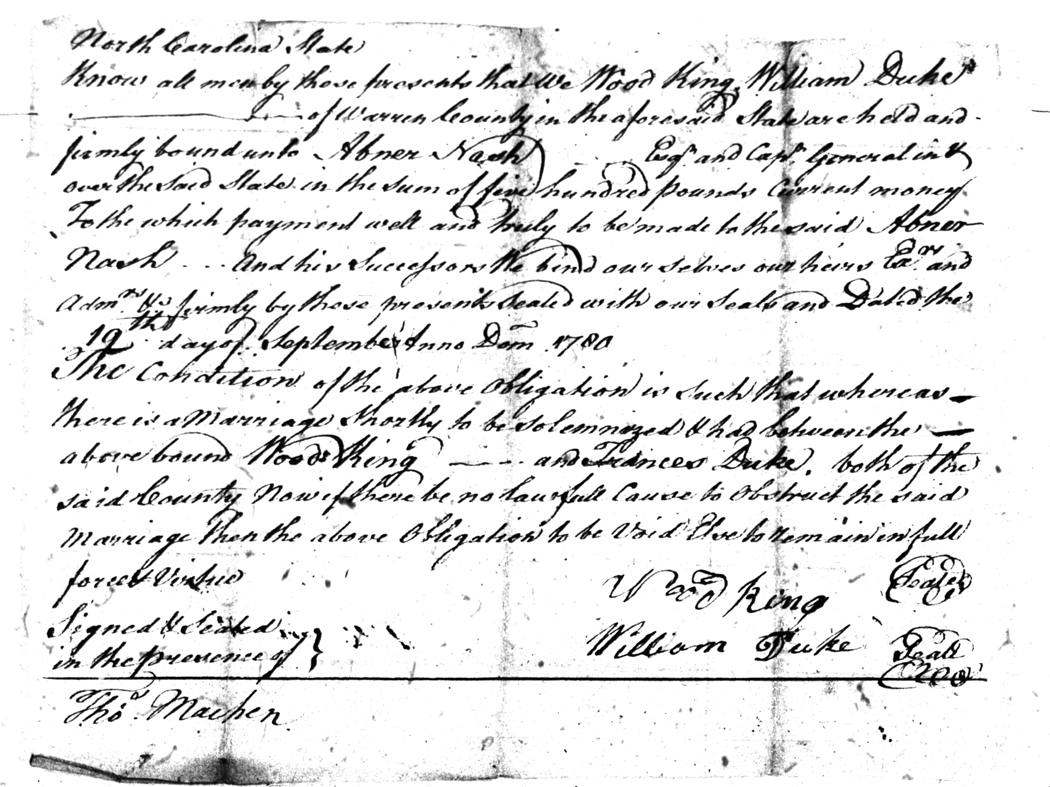 North Carolina State
Know all men by these presents that We Wood King, William Duke
of Warren County in the aforesaid State are held and
firmly bound unto Abner Nash Esqr and Capn General in &
over the said State in the sum of five hundred pounds Current money
To the which payment well and truly to be made to the said Abner
Nash And his Successors We bind our selves our heirs Exrs and
Admrs &c firmly by these presents Sealed with our Seals and Dated the
19th day of September Anno Dom 1780
The Condition of the above Obligation is Such that whereas
there is a Marriage Shortly to be Solemnazed & had between the
above bound Wood King and Frances Duke, both of the
said County Now if there be no lawfull Cause to Obstruct the said
Marriage then the above Obligation to be Void Else to remain in full
force & Virtue
Wood King Seal
Signed & Sealed
in the presence of
William Duke Seal
Thos Machen